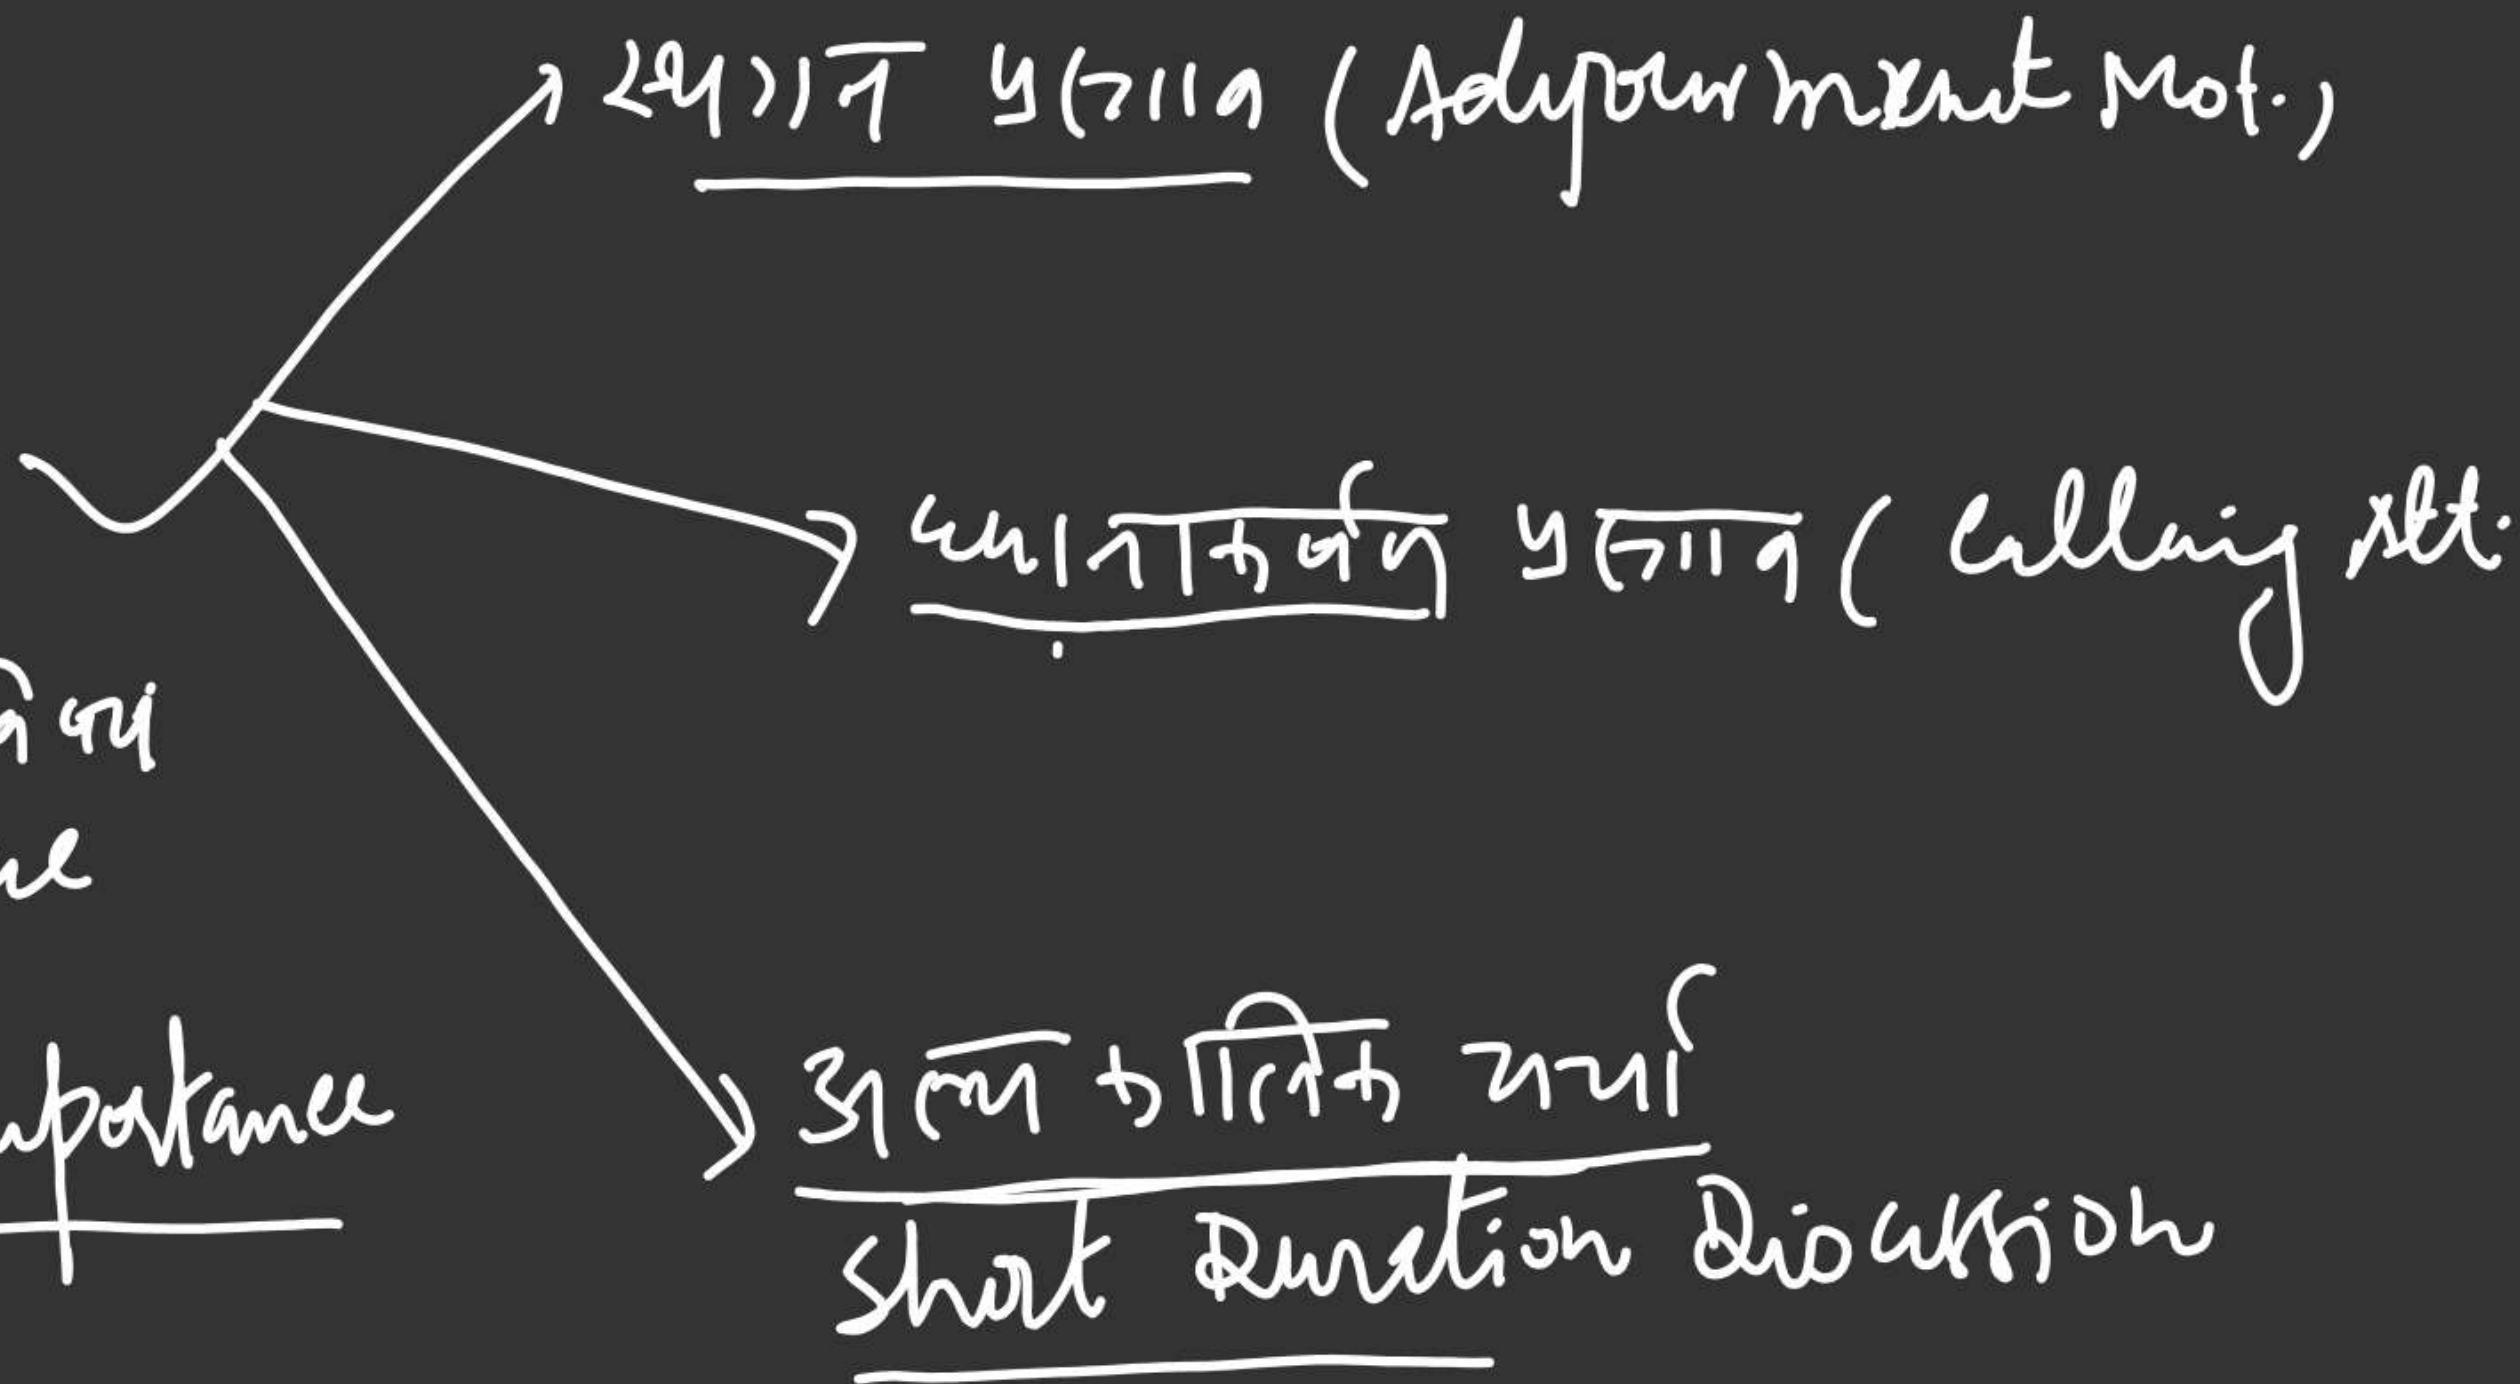 स्थगन प्रस्ताव (Adjournment Mot.)
ध्यानाकर्षण प्रस्ताव ( Calling Att.
अल्पकालिक चर्चा
mportance
Short Duration Discussion